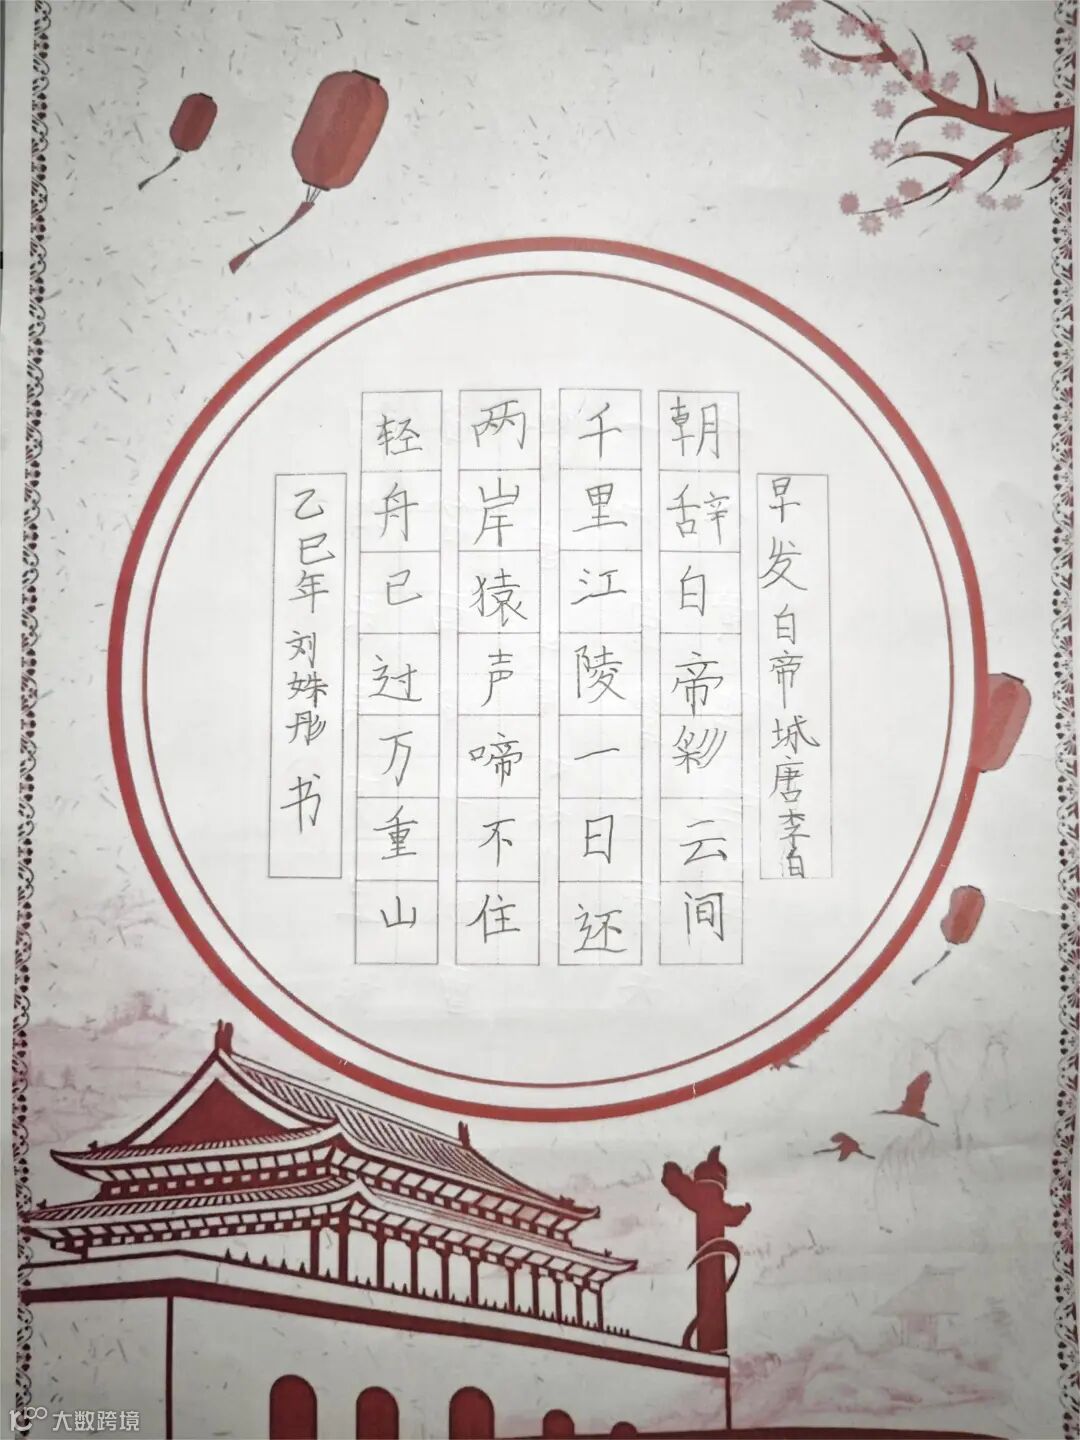 早发白帝城唐李白
朝辞白帝彩云间
千里江陵一日还
两岸猿声啼不住
轻舟已过万重山
乙巳年刘姝彤书
大数跨境